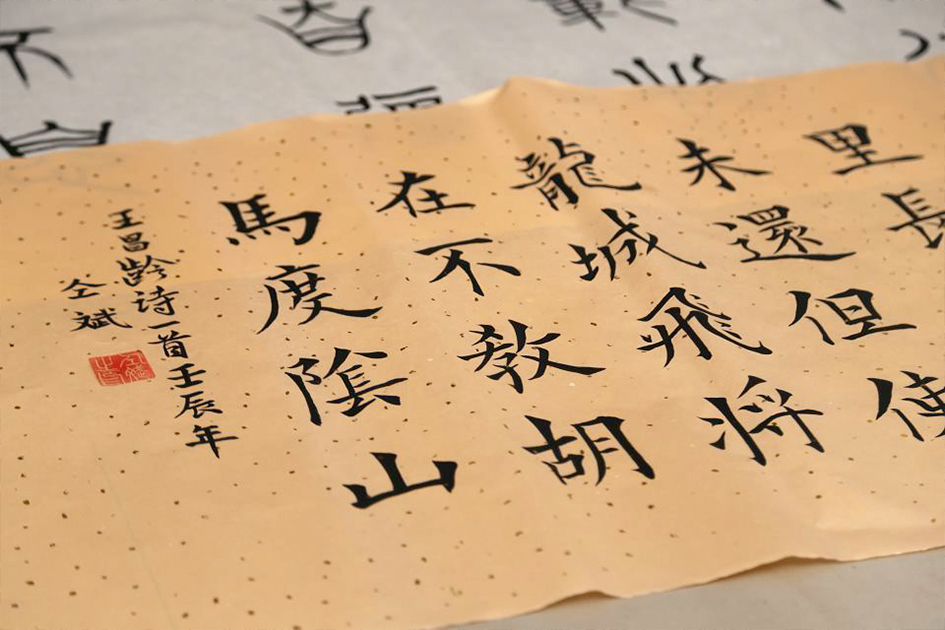 里長
未還但使
龍城飛將
在不教胡
馬度隂山
王昌齡诗一首壬辰年
仝斌